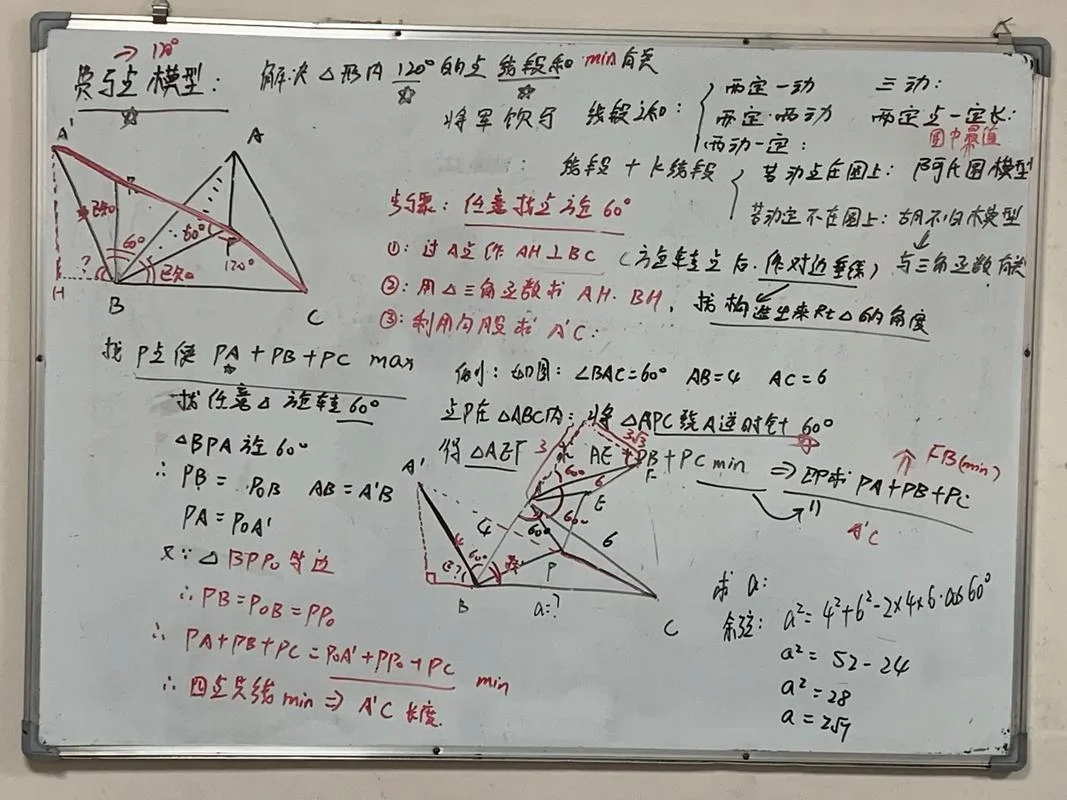 →120°
费马点模型： 解决△形内120°的点 线段和min有关
将军饮马 线段之和：
两定一动 三动：
两定两动 两定点一定长：
两动一定： 圆中最值
： 线段+k线段
若动点在圆上：阿氏圆模型
若动点不在圆上：胡不归模型
与三角函数有关
步骤：任意找点旋60°
①：过A点作AH⊥BC （旋转点后，作对边垂线）
②：用△三角函数求AH·BH， 找构造出来Rt△的角度
③：利用勾股求A'C：
A'
A
P₀
已知
60°
60°
P
120°
?
已知
H
B
C
找P点使PA+PB+PC max
找任意△旋转60°
△BPA旋60°
∴ PB=P₀B AB=A'B
PA=P₀A'
又∵△BPP₀等边
∴PB=P₀B=PP₀
∴ PA+PB+PC=P₀A'+PP₀+PC min
∴四点共线min⇒A'C长度.
例：如图：∠BAC=60° AB=4 AC=6
点P在△ABC内：将△APC绕A逆时针60°
得△AEF 求 AE+PB+PC min ⇒即求PA+PB+PC
FB(min)
A'C
A'
3
3√3
60
6
F
E
60°
60°
4
6
60
P
B
a=?
C
求a：
余弦： a²=4²+6²-2×4×6·cos60°
a²=52-24
a²=28
a=2√7